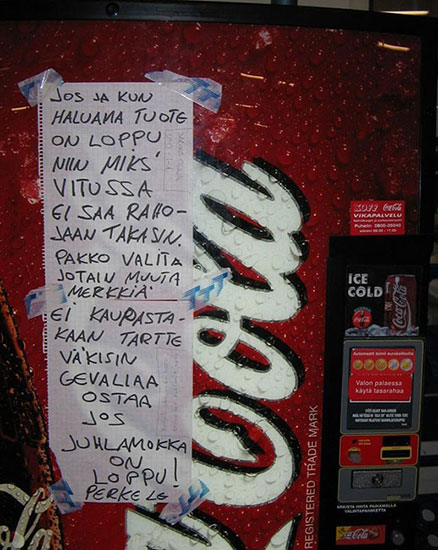 JOS JA KUN
HALUAMA TUOTE
ON LOPPU
NIIN MIKS'
VITUSSA
EI SAA RAHO-
JAAN TAKASIN.
PAKKO VALITA
JOTAIN MUUTA
MERKKIÄ
EI KAURASTA-
KAAN TARTTE
VÄKISIN
GEVALIAA
OSTAA
JOS
JUHLAMOKKA
ON
LOPPU!
PERKELE
Cola
REGISTERED TRADE MARK
VIKAPALVELU
Puhelin: 0800-05040
ICE
COLD
Coca-Cola
Valon palaessa
käytä tasarahaa